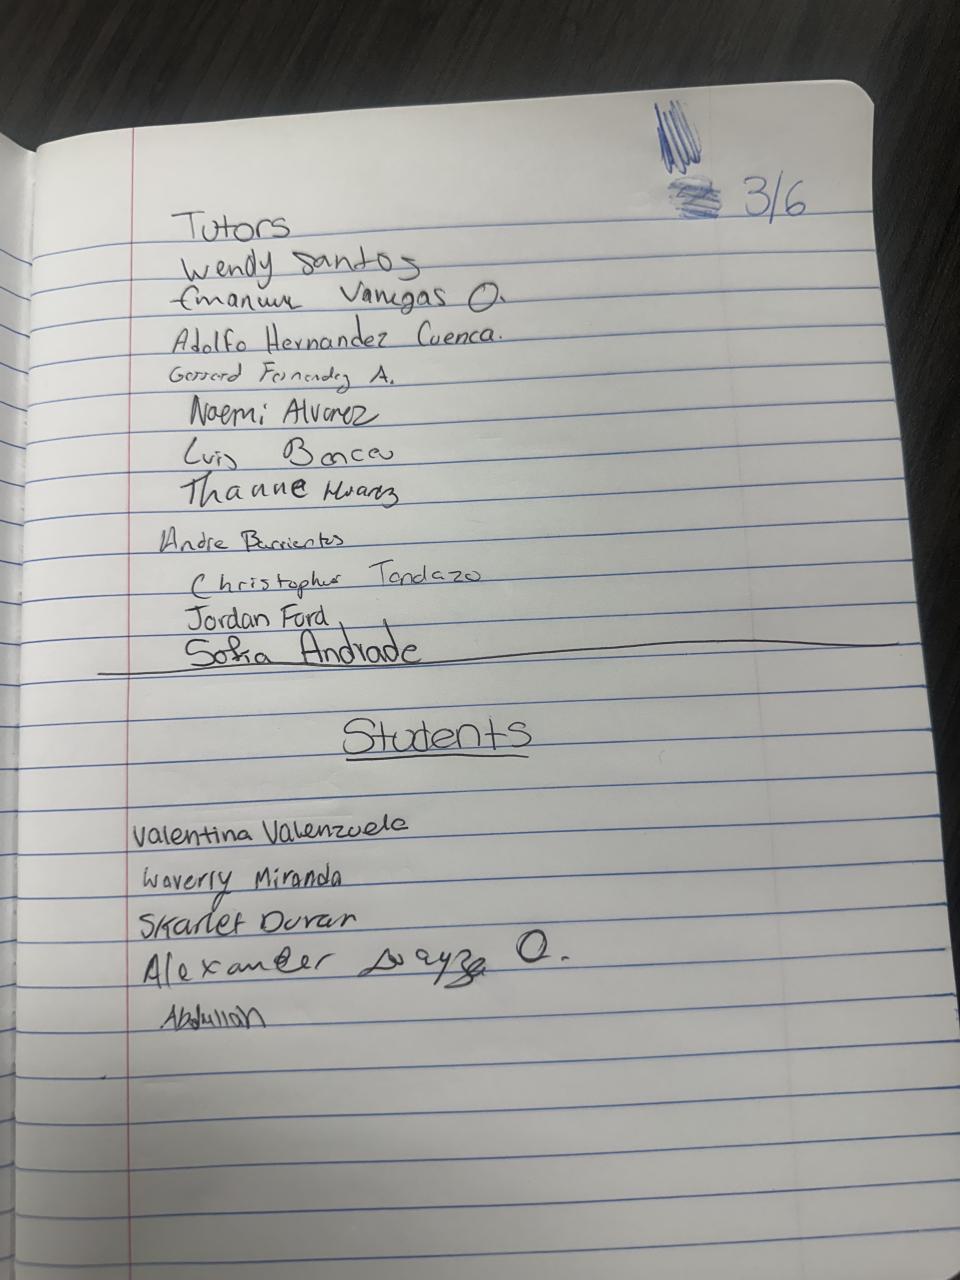 3/6
Tutors
Wendy Santos
Vanegas O.
Adolfo Hernandez Cuenca.
Gerrard Fernandez A.
Naemi Alvarez
Luis
Thanne Alvarez
Andre Barrientos
Christopher Tandazo
Jordan Ford
Sofia Andrade
Students
Valentina Valenzuela
Waverly Miranda
Skarlet Duran
Alexander O.
Abdullah